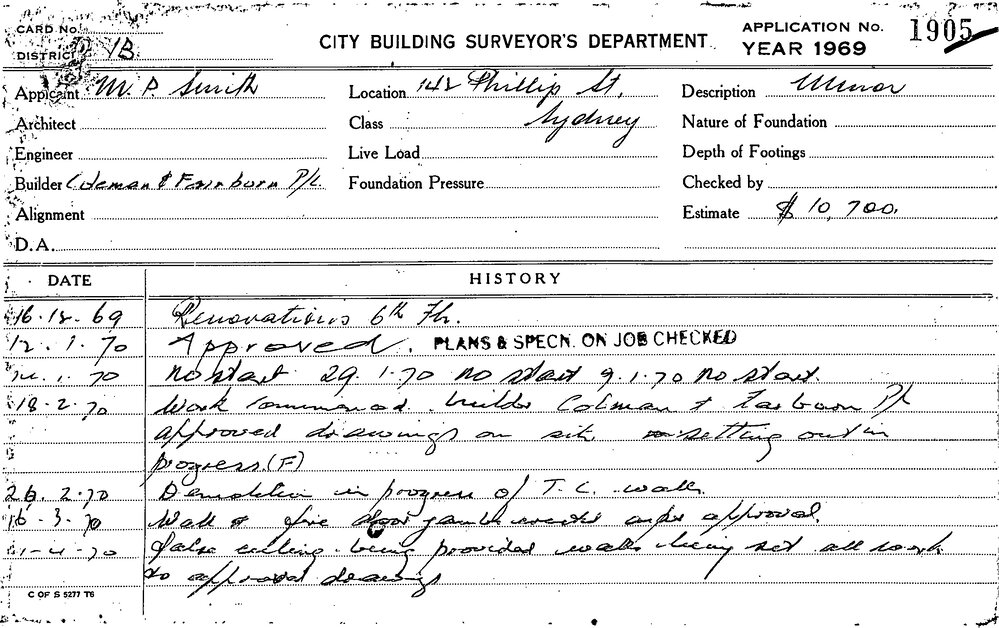 CARD No.
CITY BUILDING SURVEYOR'S DEPARTMENT
APPLICATION No. 1905
DISTRICT 1B
YEAR 1969
Applicant M. P. Smith Location 142 Phillip St, Description Minor
Architect Class Sydney Nature of Foundation
Engineer Live Load Depth of Footings
Builder Coleman & Fairburn P/L Foundation Pressure Checked by
Alignment Estimate $ 10,700.
D.A.
DATE HISTORY
16.12.69 Renovations 6th Fl.
12.1.70 Approved. PLANS & SPECN. ON JOB CHECKED
1.70 no start 29.1.70 no start 9.1.70 no start.
18.2.70 Work commenced. builder Colman & Fairburn P/L
approved drawings on site setting out in
progress. (F)
26.2.70 Demolition in progress of T.C. walls.
16-3-70 Wall & fire door jambs approval.
1-4-70 false ceiling being provided walls being set all work
to approved drawings
C OF S 5277 T6